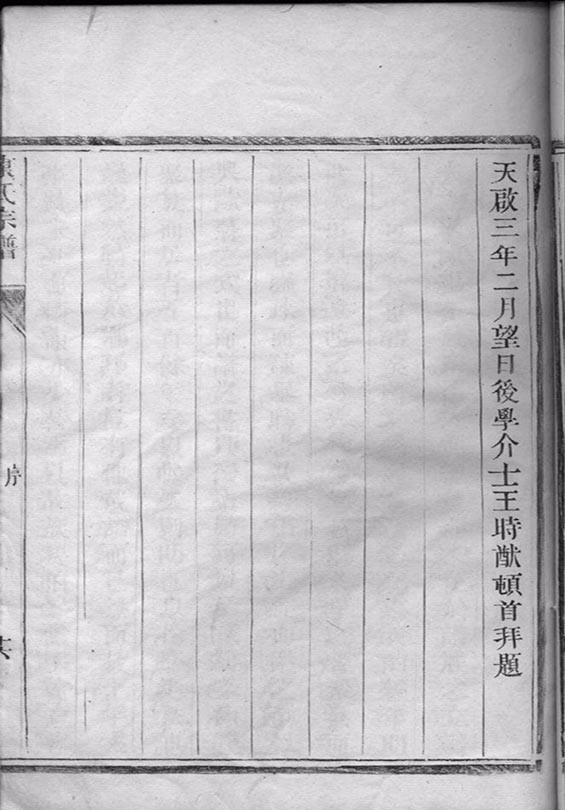 天啟三年二月望日後學介士王時猷頓首拜題
氏宗譜
序